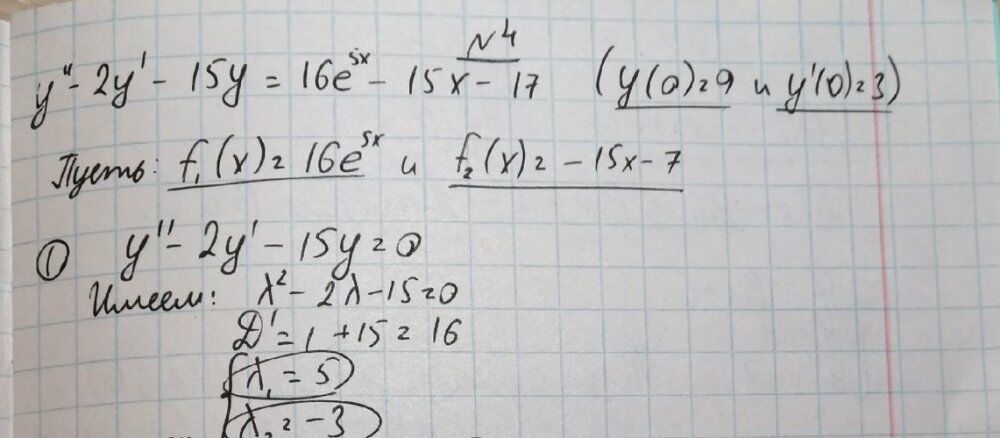 №4
y'' - 2y' - 15y = 16e^{5x} - 15x - 17 (y(0)=9 и y'(0)=3)
Пусть: f₁(x) = 16e^{5x} и f₂(x) = -15x - 7
① y'' - 2y' - 15y = 0
Имеем: λ² - 2λ - 15 = 0
D' = 1 + 15 = 16
λ₁ = 5
λ₂ = -3